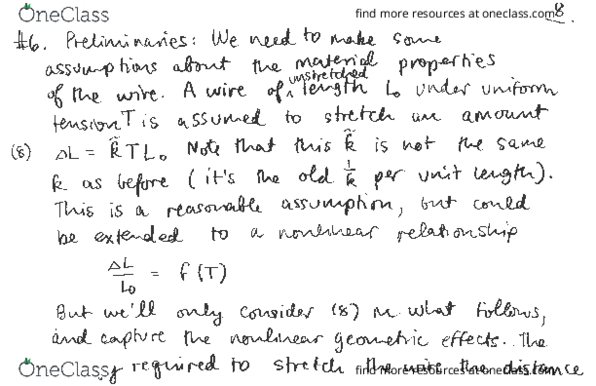 OneClass find more resources at oneclass.com 8.
#6. Preliminaries: We need to make some
assumptions about the material properties
of the wire. A wire of unstretched length L₀ under uniform
tension T is assumed to stretch an amount
(8) ΔL = k̃TL₀ Note that this k̃ is not the same
k as before (it's the old 1/k per unit length).
This is a reasonable assumption, but could
be extended to a nonlinear relationship
ΔL/L₀ = f(T)
But we'll only consider (8) in what follows,
and capture the nonlinear geometric effects. The
required to stretch the wire the distance
OneClass find more resources at oneclass.com